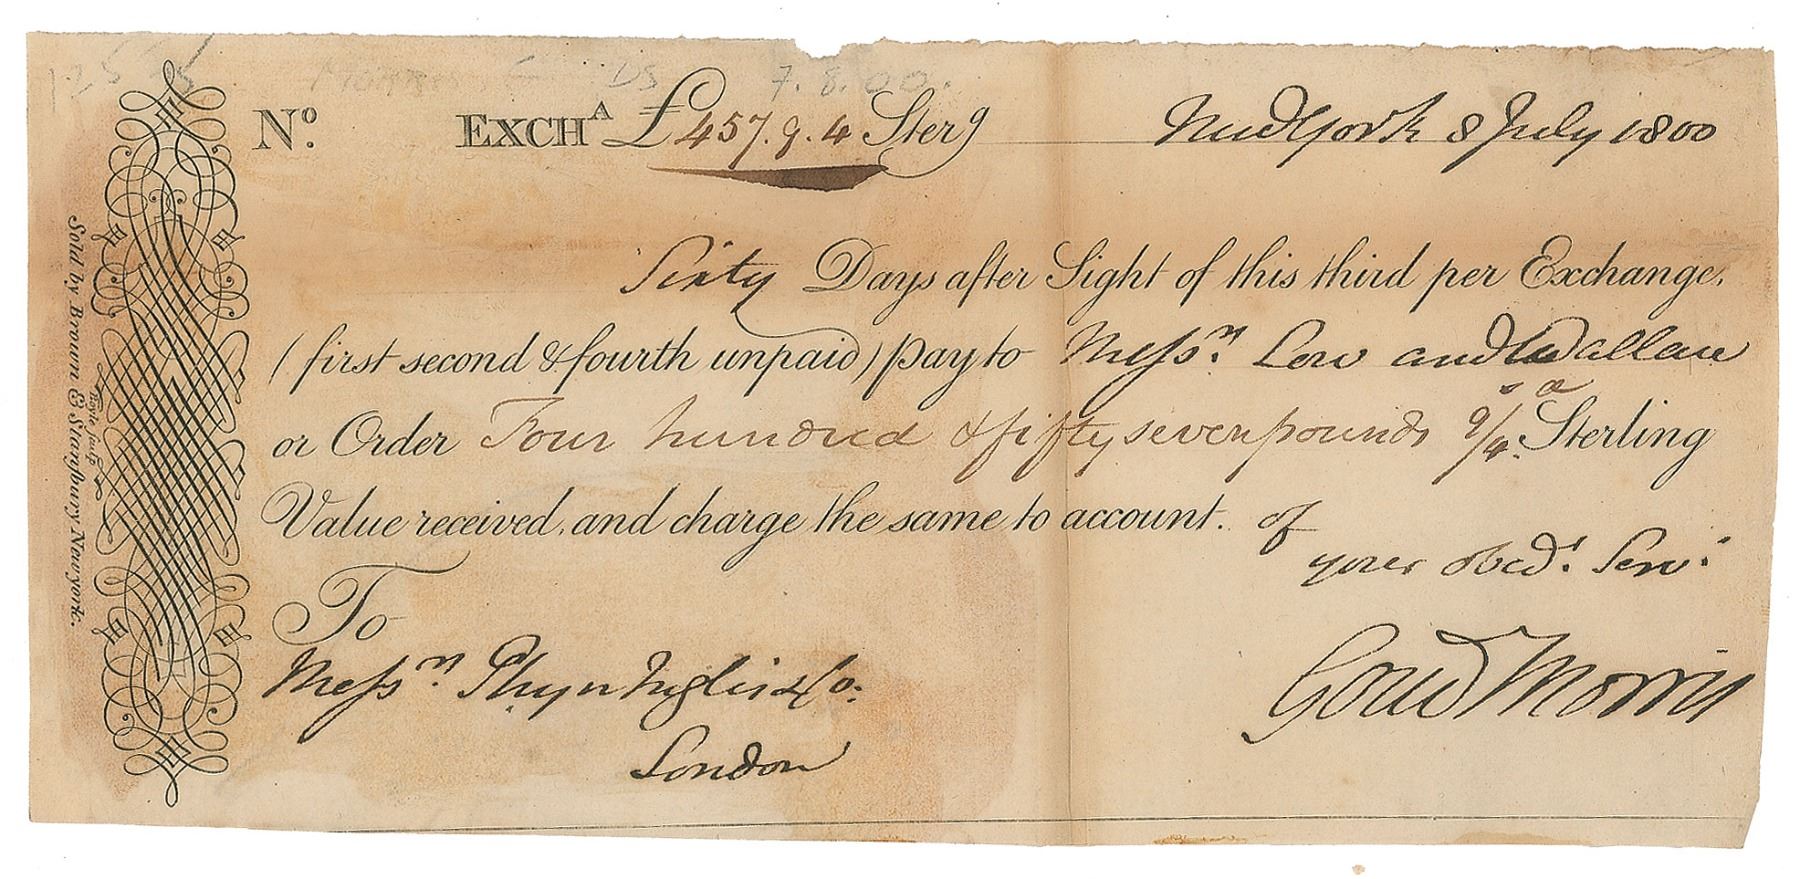 DS 7.8.00.
No. EXCHA £457.9.4 Sterg NewYork 8 July 1800
Sixty Days after Sight of this third per Exchange,
(first second & fourth unpaid) pay to Messrs. Low and Wallace
or Order Four hundred & fifty seven pounds 9s/4d. Sterling
Value received, and charge the same to account. of
your obedt. Serv.
To
Messrs Phyn Inglis & Co.
London
Gouv Morris
Sold by Brown & Stansbury New York.